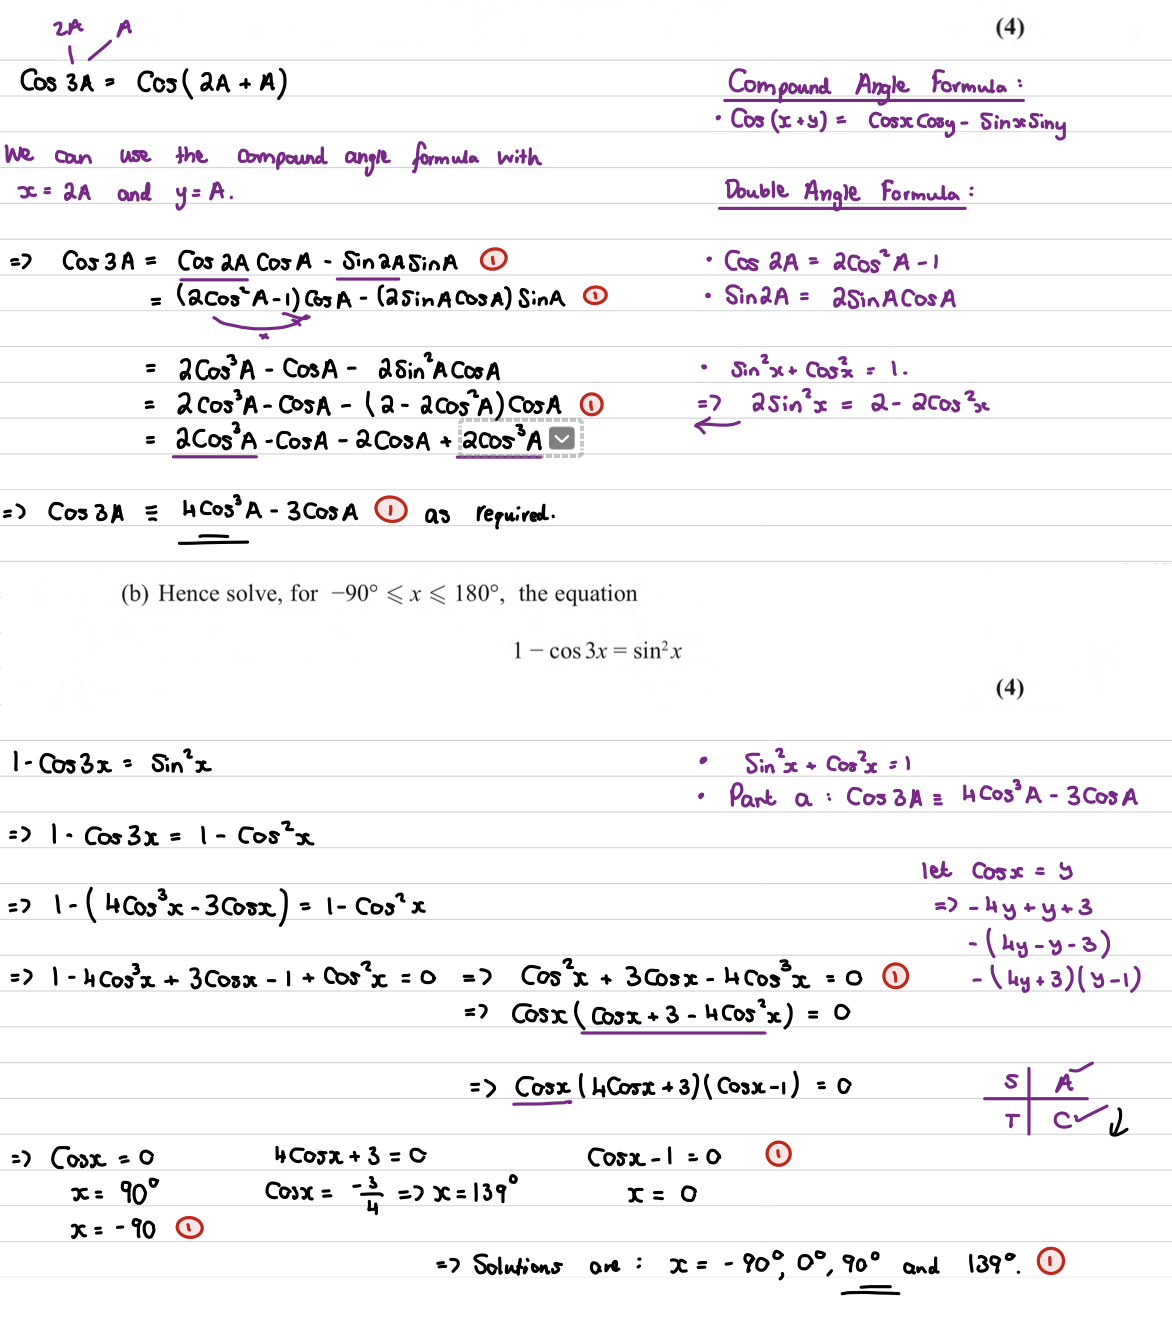 2A A
(4)
Cos 3A = Cos(2A + A)
Compound Angle Formula:
• Cos(x+y) = Cosx Cosy - Sinx Siny
We can use the compound angle formula with
x = 2A and y = A.
Double Angle Formula:
=> Cos 3A = Cos 2A Cos A - Sin 2A Sin A ①
• Cos 2A = 2Cos²A - 1
= (2cos²A - 1) Cos A - (2 Sin A Cos A) Sin A ①
• Sin 2A = 2 Sin A Cos A
= 2Cos³A - Cos A - 2 Sin²A Cos A
• Sin²x + Cos²x = 1.
= 2cos³A - Cos A - (2 - 2cos²A) Cos A ①
=> 2 Sin²x = 2 - 2cos²x
= 2Cos³A - Cos A - 2Cos A + 2cos³A
=> Cos 3A ≡ 4Cos³A - 3Cos A ① as required.
(b) Hence solve, for −90° ⩽ x ⩽ 180°, the equation
1 − cos 3x = sin²x
(4)
1 - Cos 3x = Sin²x
• Sin²x + Cos²x = 1
• Part a : Cos 3A ≡ 4Cos³A - 3Cos A
=> 1 - Cos 3x = 1 - Cos²x
let Cosx = y
=> 1 - (4Cos³x - 3Cosx) = 1 - Cos²x
=> - 4y + y + 3
- (4y - y - 3)
=> 1 - 4Cos³x + 3Cosx - 1 + Cos²x = 0 => Cos²x + 3Cosx - 4Cos³x = 0 ①
- (4y + 3)(y - 1)
=> Cosx (Cosx + 3 - 4Cos²x) = 0
=> Cosx (4Cosx + 3)(Cosx - 1) = 0
S A
T C
=> Cosx = 0 4Cosx + 3 = 0 Cosx - 1 = 0 ①
x = 90° Cosx = -3/4 => x = 139° x = 0
x = - 90 ①
=> Solutions are : x = - 90°, 0°, 90° and 139°. ①